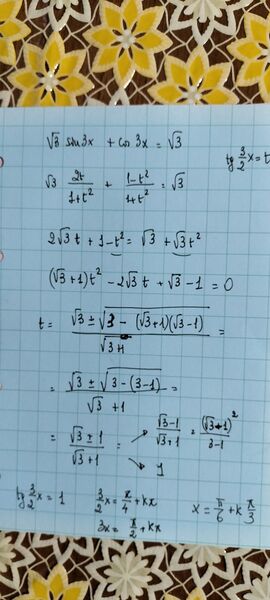 √3 sin3x + cos3x = √3
tg 3/2 x = t
√3 2t/(1+t²) + (1-t²)/(1+t²) = √3
2√3 t + 1 - t² = √3 + √3 t²
(√3+1)t² - 2√3 t + √3 - 1 = 0
t = (√3 ± √(3 - (√3+1)(√3-1)))/(√3+1) =
= (√3 ± √(3-(3-1)))/(√3+1) =
= (√3 ± 1)/(√3+1) = → (√3-1)/(√3+1) = (√3-1)²/(3-1)
↘ 1
tg 3/2 x = 1 3/2 x = π/4 + kπ x = π/6 + k π/3
3x = π/2 + kπ